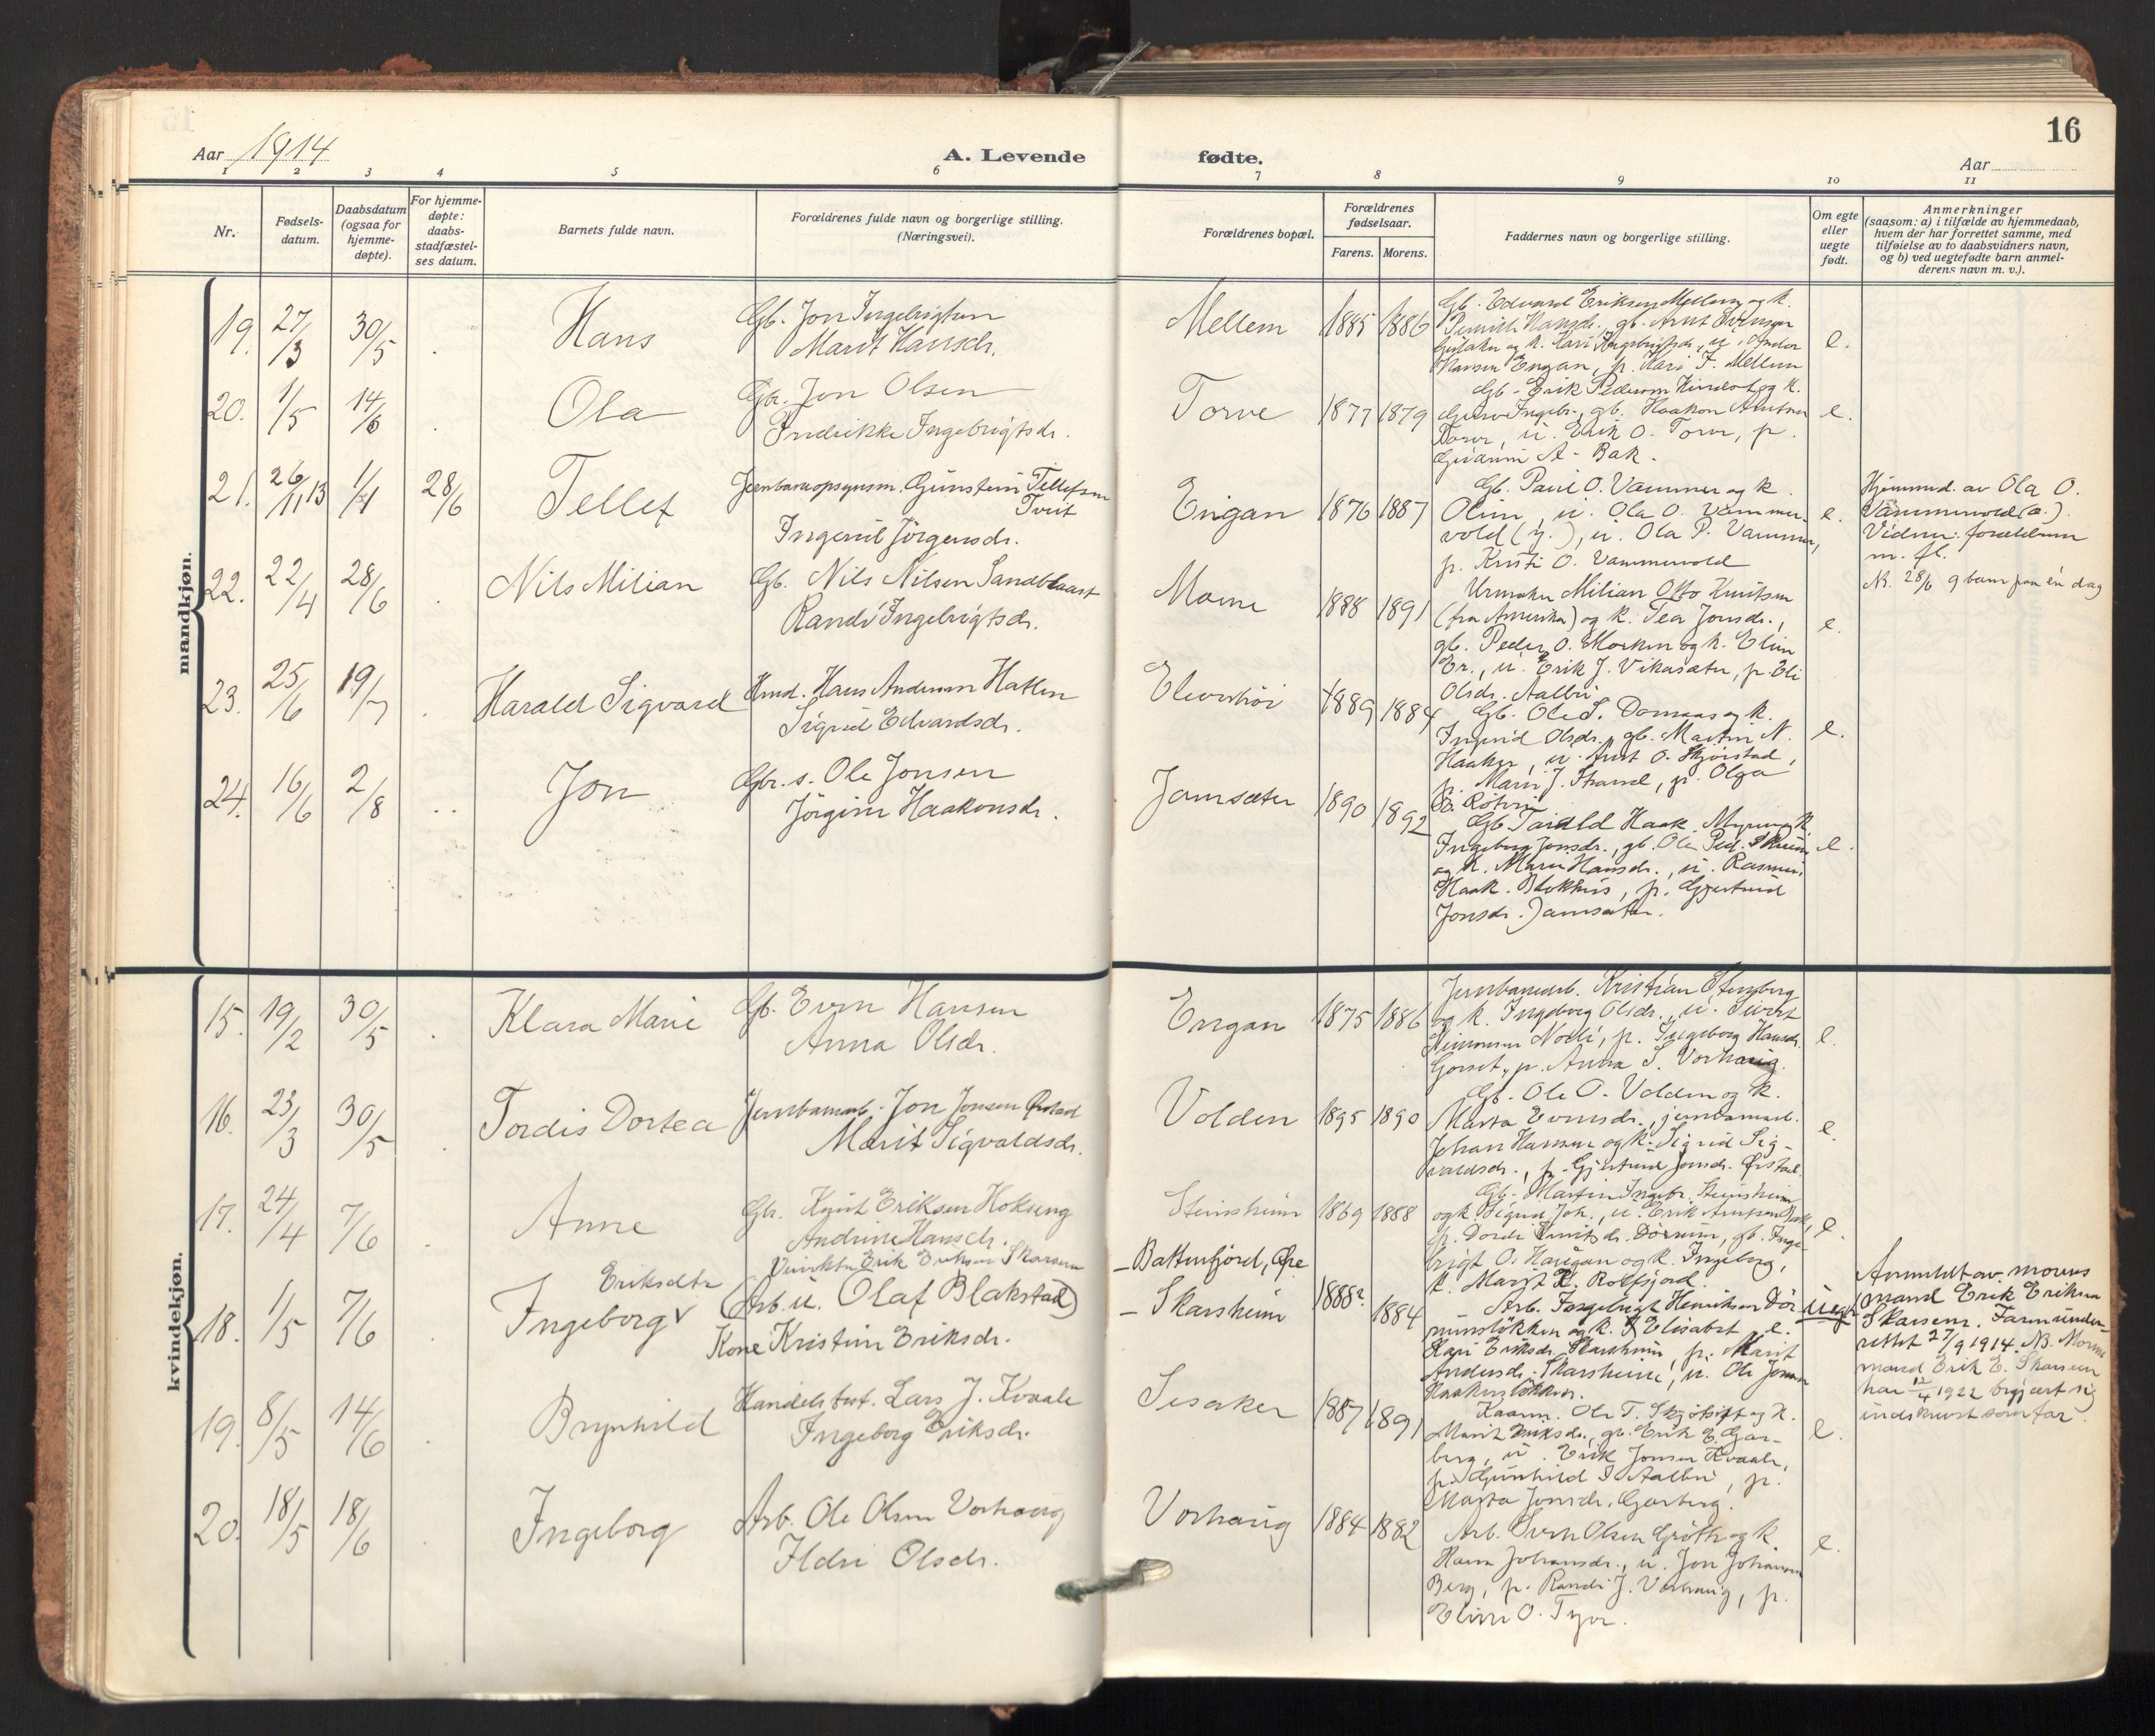 16
Aar 1914
A. Levende
fødte.
Aar
1 2 3 4 5 6 7 8 9 10 11
Nr.
Fødsels-
datum.
Daabsdatum
(ogsaa for
hjemme-
døpte).
For hjemme-
døpte:
daabs-
stadfæstel-
ses datum.
Barnets fulde navn.
Forældrenes fulde navn og borgerlige stilling.
(Næringsvei).
Forældrenes bopæl.
Forældrenes
fødselsaar.
Farens. Morens.
Faddernes navn og borgerlige stilling.
Om egte
eller
uegte
født.
Anmerkninger
(saasom: a) i tilfælde av hjemmedaab,
hvem der har forrettet samme, med
tilføielse av to daabsvidners navn,
og b) ved uegtefødte barn anmel-
derens navn m. v.).
mandkjøn.
19. 27/3 30/5 Hans
Gb. Jon Ingebrigtsen
Marit Hansdr.
Mellem 1885 1886
Gb. Edvard Eriksen Mellem og k.
Hansdr., gb. Arnt
og k. Kari Ingebrigtsdr., u.
Hansen Engan, p. Kari F. Mellem
e.
20. 1/5 14/6 Ola
Gbr. Jon Olsen
Fredrikke Ingebrigtsdr.
Torve 1877 1879
Gb. Erik Pedersen og k.
Guro Ingebr., gb. Haakon Arntsen
Torve, u. Erik O. Torve, p.
A. Bak.
e.
21. 26/11 13 1/1 28/6 Tellef
Jernbaneopsynsm. Gunstein Tellefsen
Tveit
Ingerid Jörgensdr.
Engan 1876 1887
Gb. Paul O. Vammer og k.
Oline, u. Ola O. Vammer-
vold (y.), u. Ola P. Vammer,
p. Kristi O. Vammervold
e.
Hjemmed. av Ola O.
Vammervold (e.).
Vidner: forældrene
m. fl.
22. 22/4 28/6 Nils Milian
Gb. Nils Nilsen Sandblaast
Randi Ingebrigtsdr.
Moene 1888 1891
Urmaker Milian Otto Knutsen
(fra Amerika) og k. Tea Jonsdr.,
gb. Peder O. Morken og k. Elin
Er., u. Erik J. Vikasæter, p. Eli
Olsdr. Aalbu
e.
NB. 28/6 9 barn paa én dag
23. 25/6 19/7 Harald Sigvard
Hmd. Hans Andersen Hatlen
Sigrid Edvardsdr.
1889 1884
Gb. Ole S. Domaas og k.
Ingerid Olsdr., gb. Martin N.
Haaker, u. Arnt O. Skjørstad,
p. Marie J. Strand, p. Olga
e.
24. 16/6 2/8 Jon
Gbr. s. Ole Jonsen
Jörgine Haakonsdr.
Jamsæter 1890 1892
Gb. Haak. k.
Ingeborg Jonsdr., gb. Ole Ped.
og k. Mari Hansdr., u. Rasmus
Haak. Blokhus, p. Gjertrud
Jonsdr. Jamsæter.
e.
kvindekjøn.
15. 19/2 30/5 Klara Marie
Gb. Even Hansen
Anna Olsdr.
Engan 1875 1886
Jernbanearb. Kristian Stensberg
og k. Ingeborg Olsdr., u. Sivert
Simonsen, p. Ingeborg Hansdr.
Gorset, p. Anna S. Vorhaug.
e.
16. 23/3 30/5 Tordis Dortea
Jernbanearb. Jon Jonsen Ørstad
Marit Sigvaldsdr.
Volden 1895 1890
Gb. Ole O. Volden og k.
Marta Evensdr., jernbanearb.
Johan Hansen og k. Sigrid Sig-
valdsdr., p. Gjertrud Jonsdr. Ørstad.
e.
17. 24/4 7/6 Anne
Gb. Knut Eriksen Hokseng
Andrine Hansdr.
Steinsheim 1869 1888
Gb. Martin Ingebr. Steinsheim
og k. Sigrid Joh., u. Erik Arntsen Bak,
p. Dordi Knutsdr. Dørum, gb. Inge-
brigt O. Haugan og k. Ingeborg,
k. Marit K. Rolfsjord.
e.
18. 1/5 7/6 Eriksdtr
Ingeborg v
Erik Eriksen Skarsem
(Arb. u. Olaf Blakstad)
Kone Kristine Eriksdr.
– Battenfjord, Øre
– Skarsheim
1888? 1884
Arb. Ingebrigt Henriksen Dör-
umsløkken og k. Elisabet, e.
Kari Eriksdr. Skarsheim, p. Marit
Andersdr. Skarsheim, u. Ole Jonsen
Haakensløkken.
uegte
Anmeldt av morens
mand Erik Eriksen
Skarsem. Faren under-
rettet 27/9 1914. NB. Morens
mand Erik E. Skarsem
har 12/4 1922 begjært sig
indskrevet som far.
19. 8/5 14/6 Brynhild
Handelsbest. Lars J. Kvaale
Ingeborg Eriksdr.
Sesaker 1887 1891
Kaarm. Ole T. og k.
Marit Eriksdr., gb. Erik E. Gar-
berg, u. Erik Jonsen Kvaale,
p. Gunhild I. Aalbu, p.
Marta Jonsdr. Garberg.
e.
20. 18/5 18/6 Ingeborg
Arb. Ole Olsen Vorhaug
Ildri Olsdr.
Vorhaug 1884 1882
Arb. Sven Olsen Gröth og k.
Hana Johansdr., u. Jon Johansen
Berg, p. Randi J. Vorhaug, p.
Eline O. Tyve.
e.